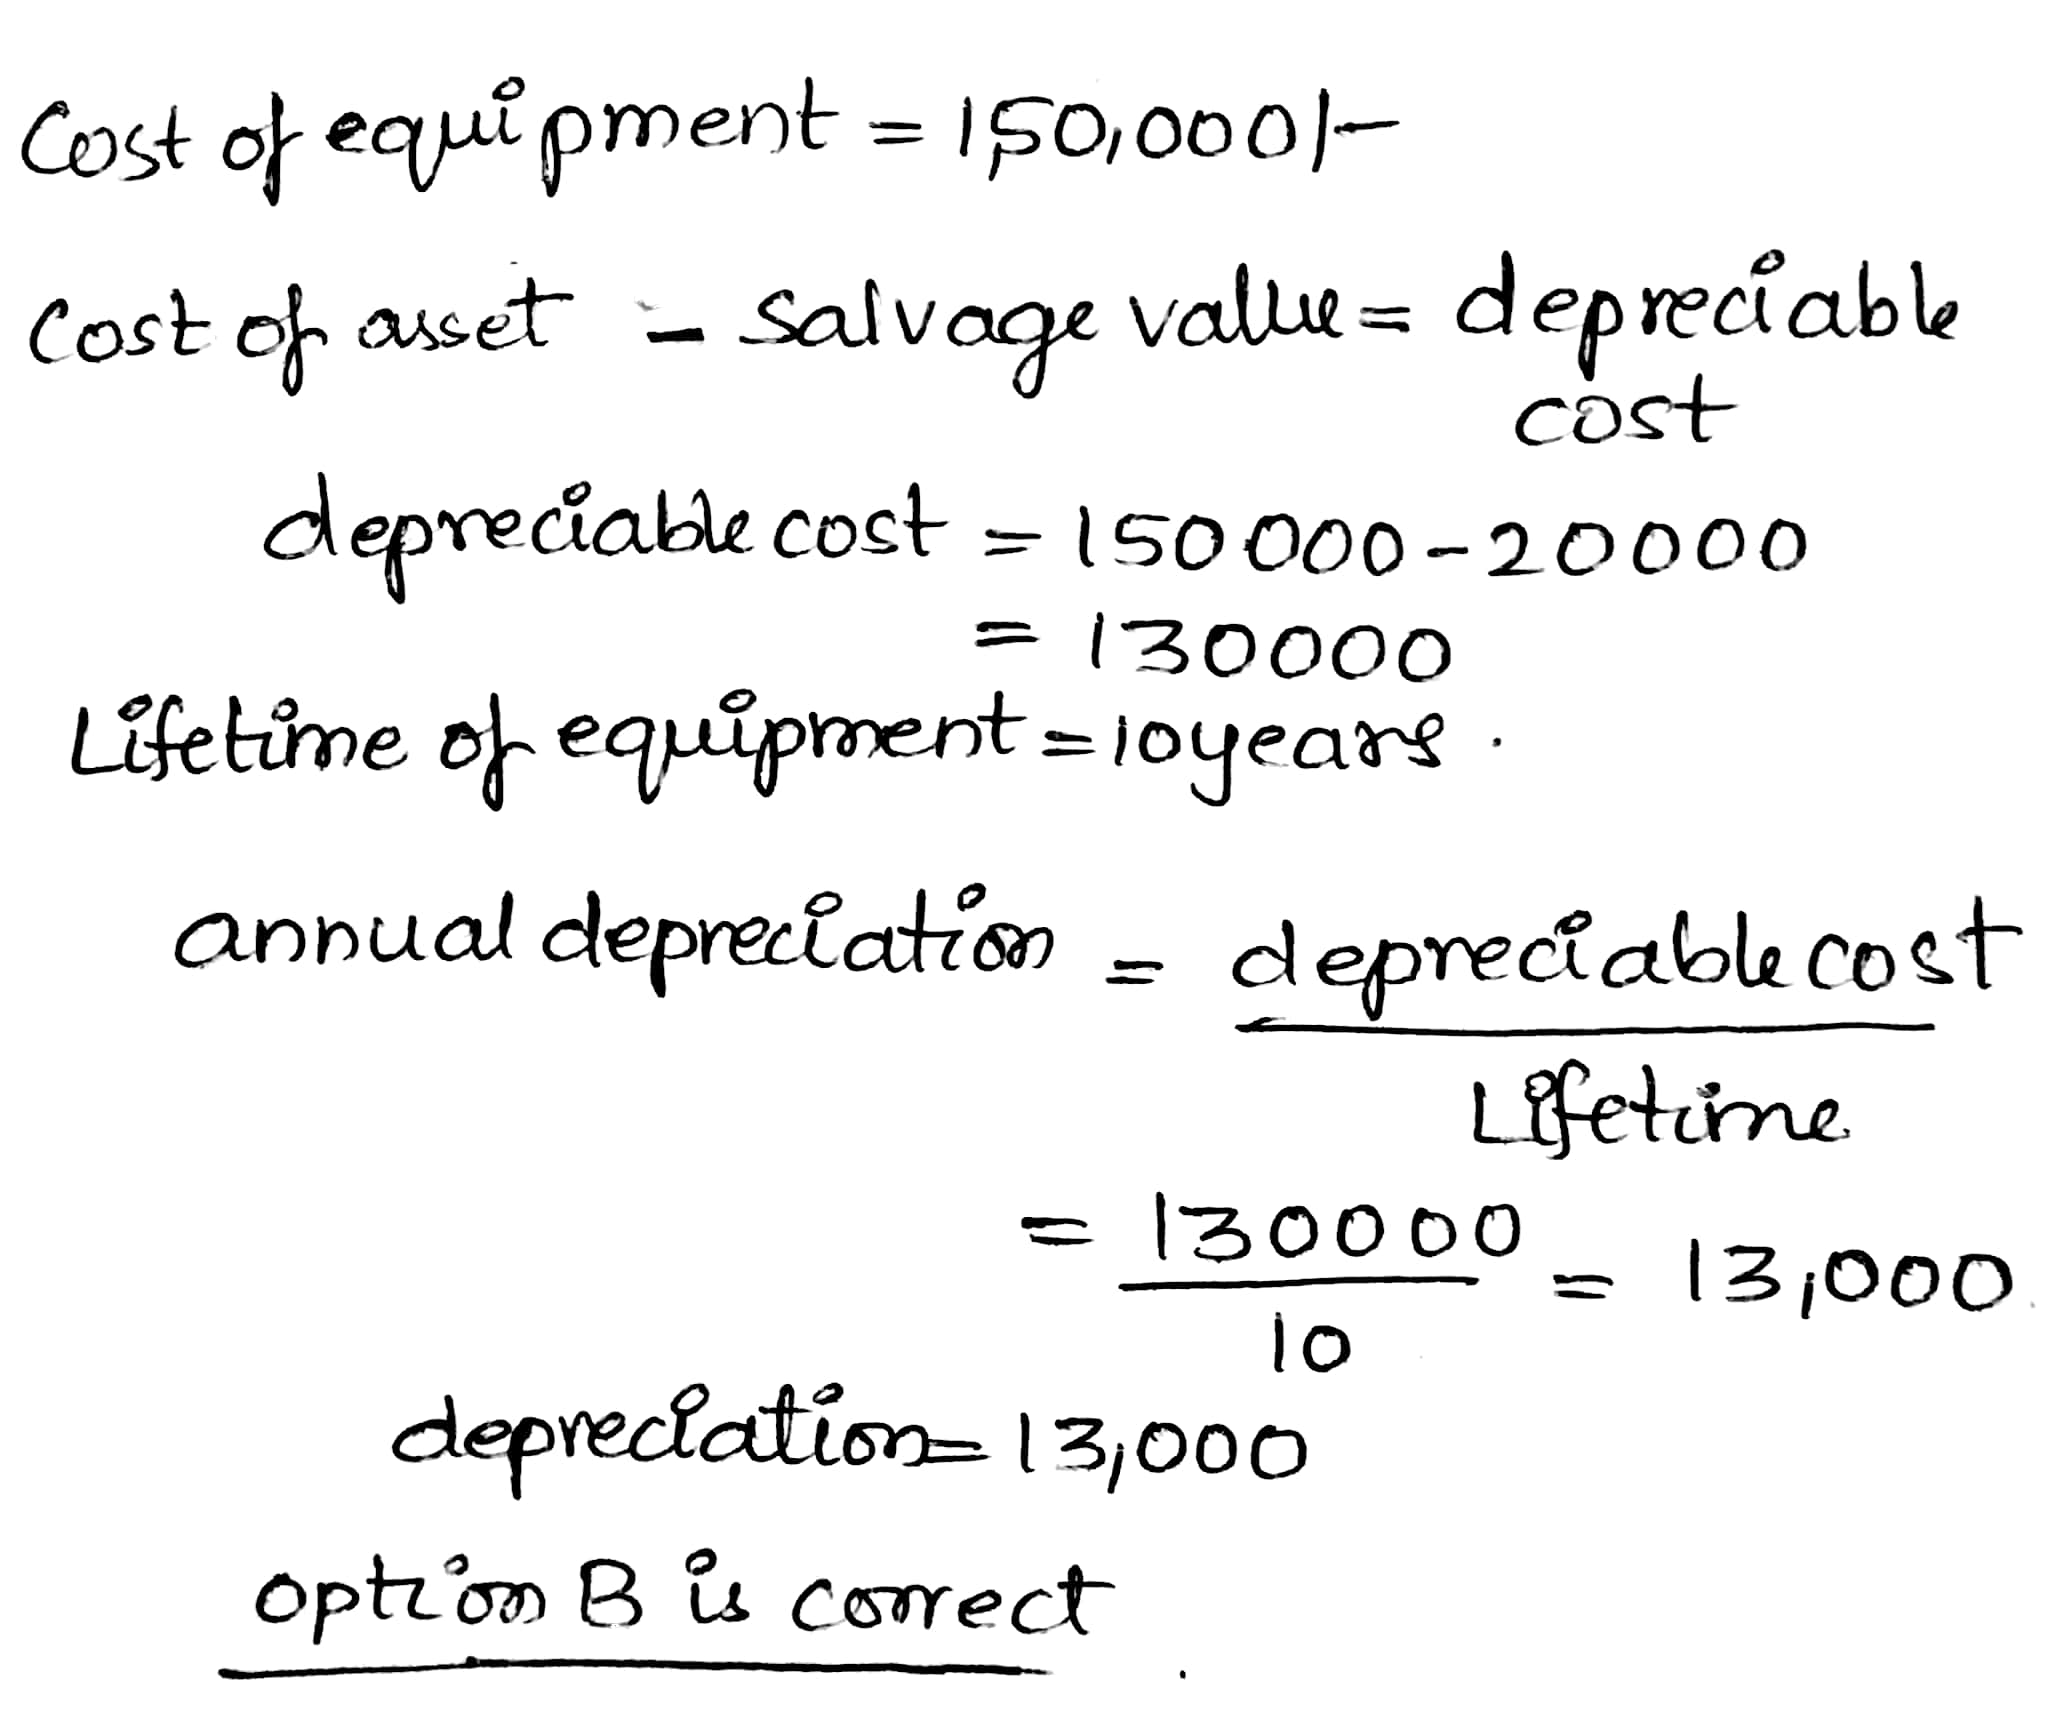 Cost of equipment = 150,000/-
Cost of asset - Salvage value = depreciable
cost
depreciable cost = 150000-20000
= 130000
Lifetime of equipment = 10 years.
annual depreciation = depreciable cost
Lifetime
= 130000 = 13,000
10
depreciation = 13,000
option B is correct.